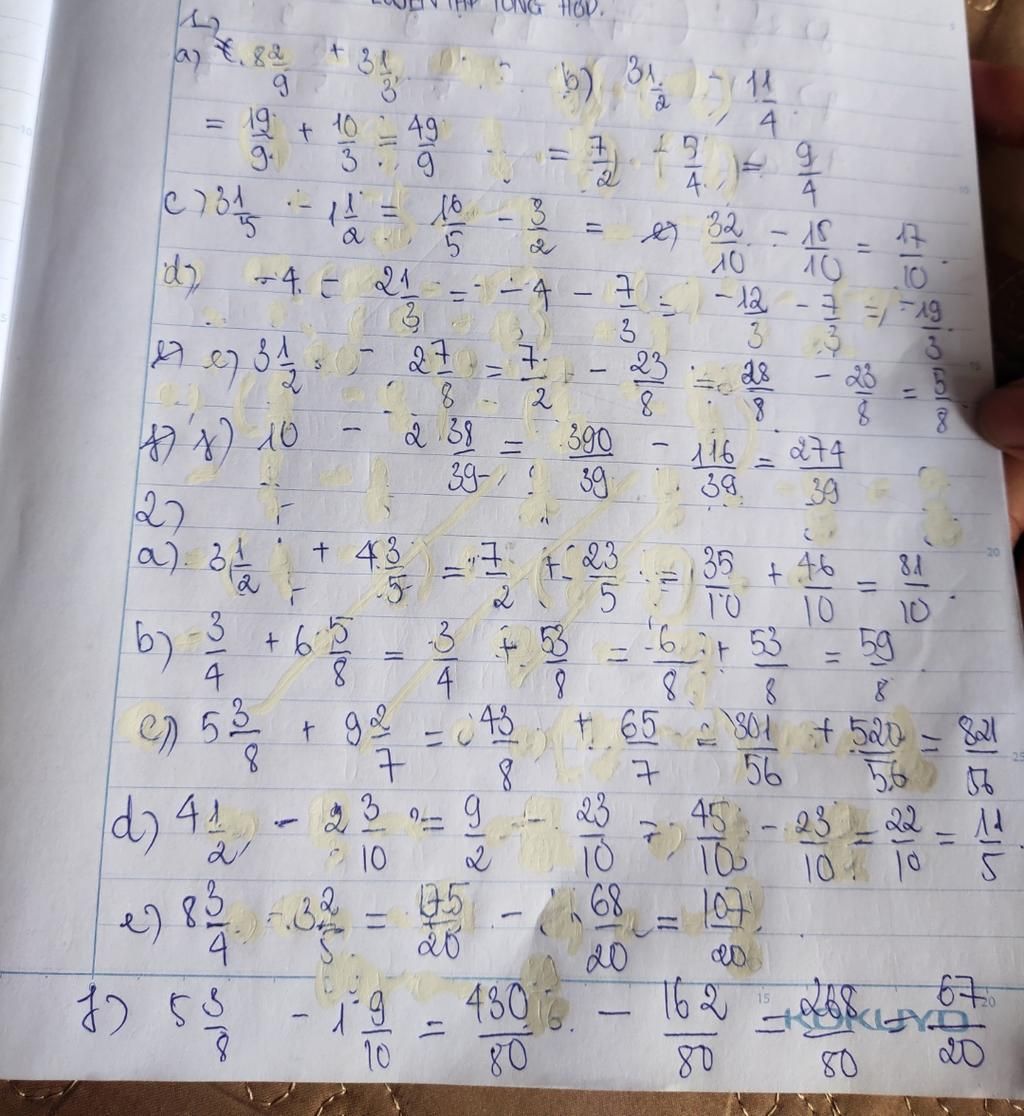 LUYỆN TẬP TỔNG HỢP.
1)
a) 8 2/9 + 3 1/3 b) 3 1/2 - 11/4
= 19/9 + 10/3 = 49/9 = 7/2 - 5/4 = 9/4
c) 3 1/5 - 1 1/2 = 16/5 - 3/2 = 32/10 - 15/10 = 17/10.
d) -4 - 2 1/3 = -4 - 7/3 = -12/3 - 7/3 = -19/3.
e) 3 1/2 - 2 7/8 = 7/2 - 23/8 = 28/8 - 23/8 = 5/8.
f) 10 - 2 38/39 = 390/39 - 116/39 = 274/39
2)
a) 3 1/2 + 4 3/5 = 7/2 + 23/5 = 35/10 + 46/10 = 81/10.
b) 3/4 + 6 5/8 = 3/4 + 53/8 = 6/8 + 53/8 = 59/8.
c) 5 3/8 + 9 2/7 = 43/8 + 65/7 = 301/56 + 520/56 = 821/56
d) 4 1/2 - 2 3/10 = 9/2 - 23/10 = 45/10 - 23/10 = 22/10 = 11/5
e) 8 3/4 - 3 2/5 = 175/20 - 68/20 = 107/20
f) 5 3/8 - 1 9/10 = 430/80 - 162/80 = 268/80 = 67/20
KOKUYO